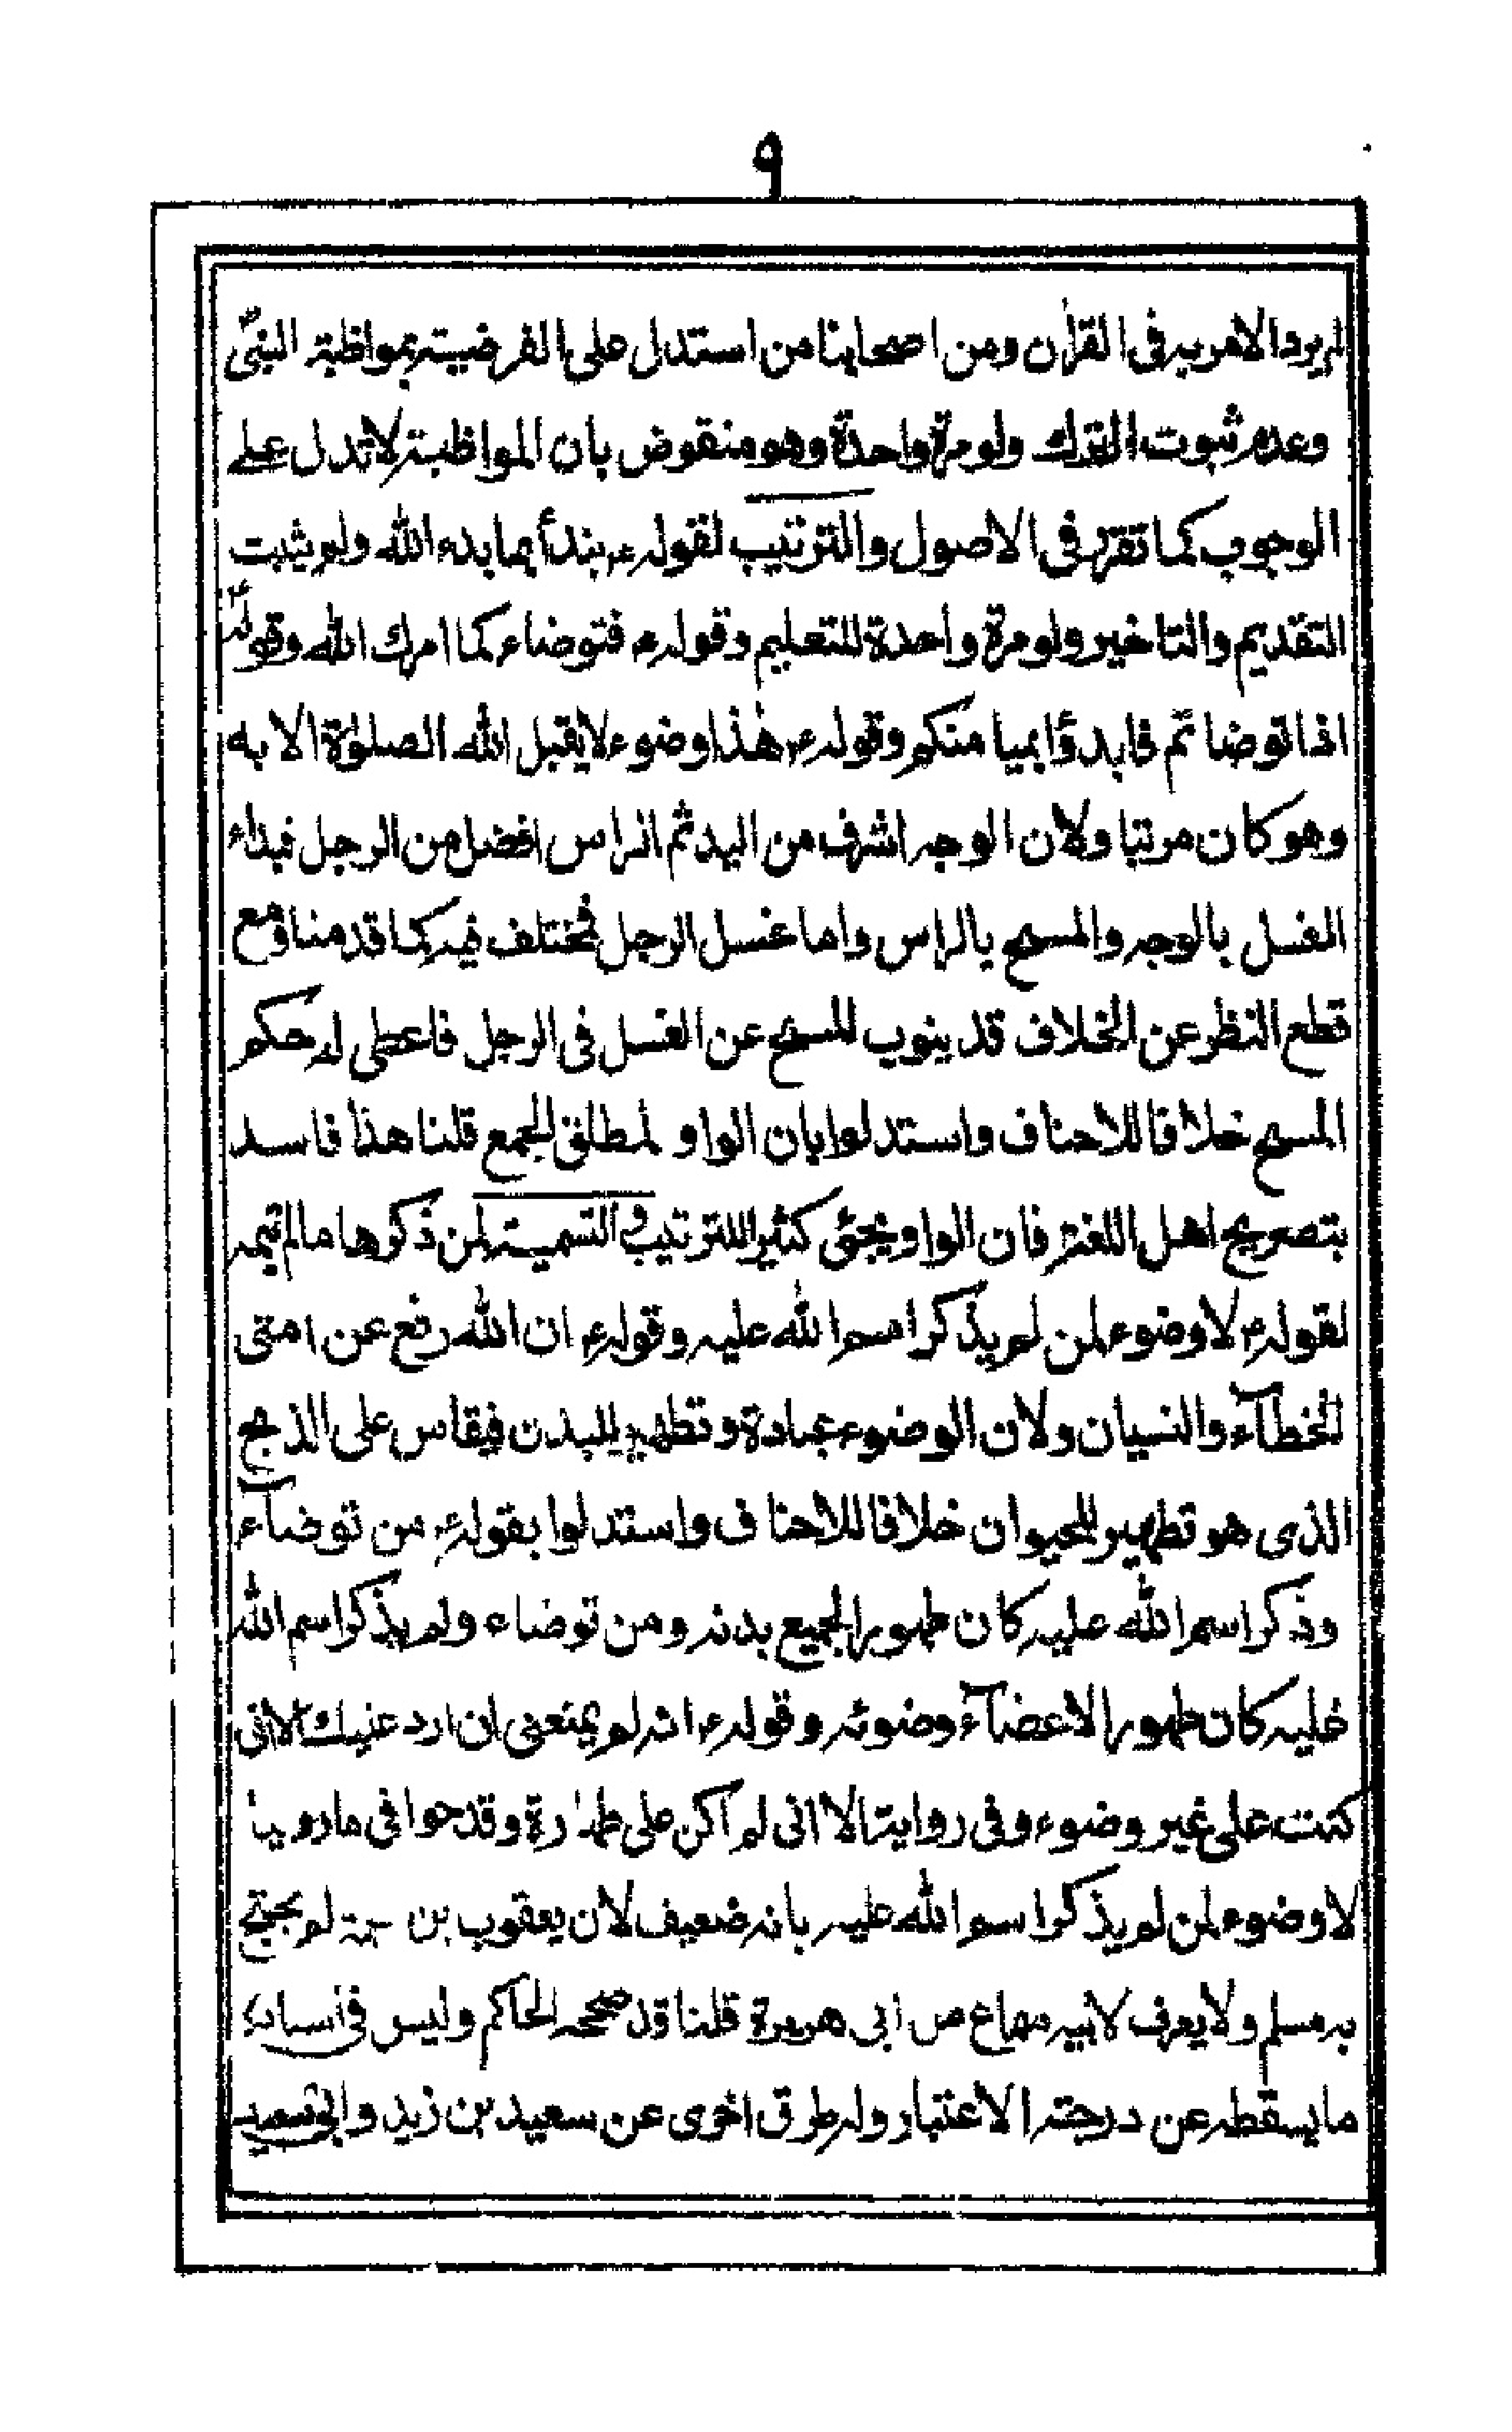 ٩
لم يرد الامر به فى القرأن ومن اصحابنا من استدل على الفرضية بمواظبة النبىؐ
وعدم ثبوت الترك ولو مرة واحدة وهو منقوض بان المواظبة لا تدل على
الوجوب كما تقرر فى الاصول والترتيب لقولهؑ نبدأ بما بدء الله ولم يثبت
التقديم والتاخير ولو مرة واحدة للتعليم وقولهؑ فتوضاء كما امرك الله وقولهؑ
اذا توضاتم فابدؤا بميامنكم وقولهؑ هذا وضوء لا يقبل الله الصلوة الا به
وهو كان مرتبا ولان الوجه اشرف من اليد ثم الراس افضل من الرجل فبداء
الغسل بالوجه والمسح بالراس واما غسل الرجل فمختلف فيه كما قدمنا ومع
قطع النظر عن الخلاف قد ينوب المسح عن الغسل فى الرجل فاعطى له حكم
المسح خلافا للاحناف واستدلوا بان الواو لمطلق الجمع قلنا هذا فاسد
بتصريح اهل اللغة فان الواو يجئ كثيرا للترتيب و التسمية لمن ذكرها مالم يتمه
لقولهؑ لا وضوء لمن لم يذكر اسم الله عليه وقولهؑ ان الله رفع عن امتى
الخطآء والنسيان ولان الوضوء عبادة وتطهير للبدن فيقاس على الذبح
الذى هو تطهير للحيوان خلافا للاحناف واستدلوا بقولهؑ من توضآء
وذكر اسم الله عليه كان طهورا لجميع بدنه ومن توضاء ولم يذكر اسم الله
عليه كان طهورا لاعضآء وضوئه وقولهؑ انه لم يمنعنى ان ارد عنيك الا انى
كنت على غير وضوء وفى رواية الا انى لم اكن على طهارة وقدحوا فى ما روينا
لا وضوء لمن لم يذكر اسم الله عليه بانه ضعيف لان يعقوب بن لم يحتج
به مسلم ولا يعرف لابيه سماع من ابى هريرة قلنا قد صححه الحاكم وليس فى اسناده
ما يسقطه عن درجة الاعتبار وله طرق اخرى عن سعيد بن زيد وابى سعيد